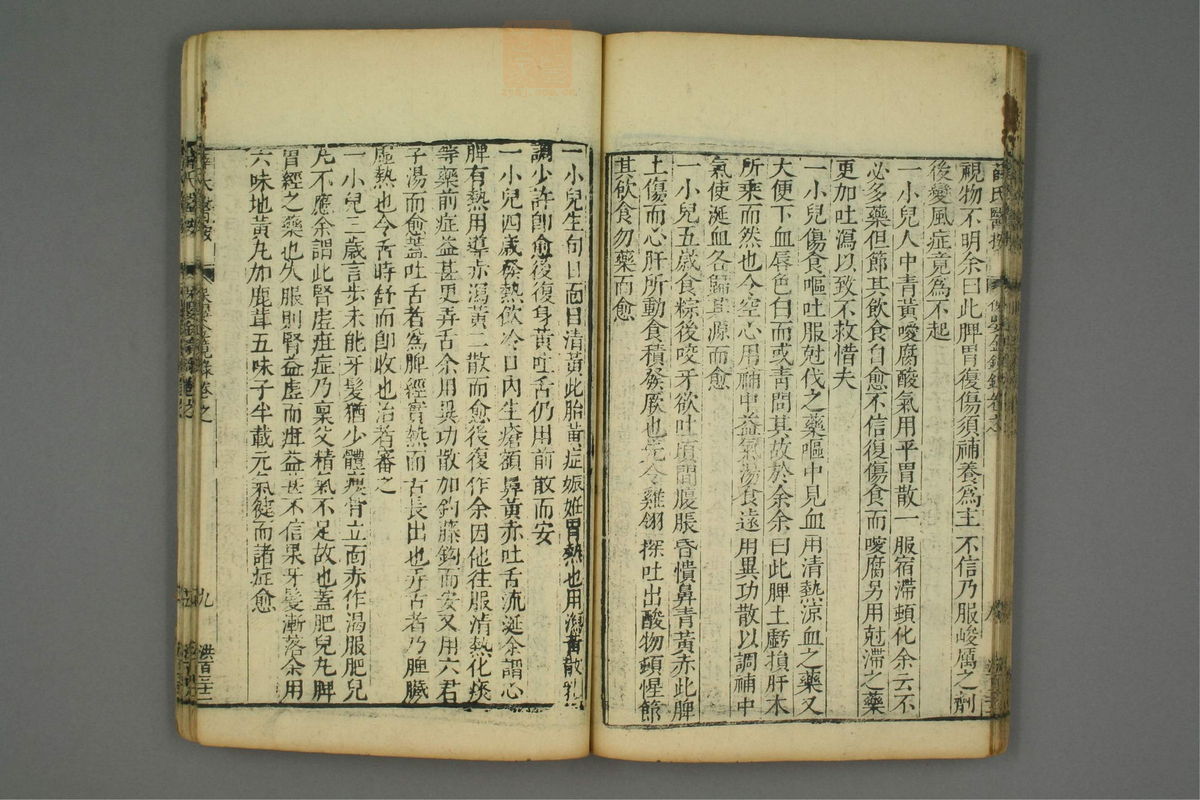 視物不明余曰此脾胃復傷須補養爲主不信乃服峻厲之劑
後變風症竟爲不起
一小兒人中青黃噯腐酸氣用平胃散一服宿滯頓化余云不
必多藥但節其飲食自愈不信復傷食而噯腐另用尅滯之藥
更加吐瀉以致不救惜夫
一小兒傷食嘔吐服尅伐之藥嘔中見血用清熱涼血之藥又
大便下血唇色白而或青問其故於余余曰此脾土虧損肝木
所乘而然也今空心用補中益氣湯食遠用異功散以調補中
氣使涎血各歸其源而愈
一小兒五歲食粽後咬牙欲吐頃間腹脹昏憒鼻青黃赤此脾
土傷而心肝所動食積發厥也令雞翎探吐出酸物頓惺節
其飲食勿藥而愈
一小兒生旬日面目清黃此胎黃症娠姙胃熱也用瀉黃散乳
調少許卽愈後復身黃吐舌仍用前散而安
一小兒四歲發熱飲冷日內生瘡額鼻黃赤吐舌流涎余謂心
脾有熱用導赤瀉黃二散而愈後復作余因他往服清熱化痰
等藥前症益甚更弄舌余用異功散加鈎藤鈎而安又用六君
子湯而愈葢吐舌者爲脾經實熱而舌長出也弄舌者乃脾臟
虛熱也今舌時舒而卽收也治者審之
一小兒三歲言步未能牙髮猶少體瘦骨立面赤作渴服肥兒
丸不應余謂此腎虛疳症乃稟父精氣不足故也蓋肥兒丸脾
胃經之藥也久服則腎益虛而疳益甚不信果牙髮漸落余用
六味地黃丸加鹿茸五味子半載元氣健而諸症愈
九